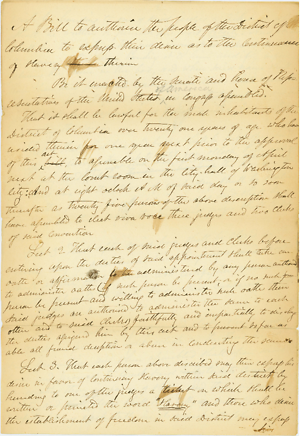 A Bill to authorise the people of the District of
Columbia to express their desire as to the continuance
of slavery therein
Be it enacted by the Senate and House of Rep-
resentatives of the United States, in Congress assembled,
That it shall be lawful for the male inhabitants of the
District of Columbia over twenty one years of age who have
resided therein for one year next prior to the approval
of this act to assemble on the first monday of April
next at the Court room in the City hall of Washington
City, and at eight oclock A M of said day or so soon
thereafter as twenty five persons of the above description shall
have assembled to elect viva voce three judges and two Clerks
of said Convention
Sect 2. That each of said judges and Clerks before
entering upon the duties of said appointment shall take an
oath or affirmation to be administered by any person authorized
to administer oaths if such person be present,
person be present and willing to administer such oath then
said judges are authorised to administer the same to each
other and to said Clerks faithfully and impartially to discharge
the duties assigned them by this act and to prevent as far as
able all frauds deception or abuse in conducting the same
Sect 3. That each person above described may express his
desire in favor of continuing slavery within said district by
handing to one of the judges a ticket on which shall be
written or printed the word "Slavery" and those who desire
the establishment of freedom in said District may express